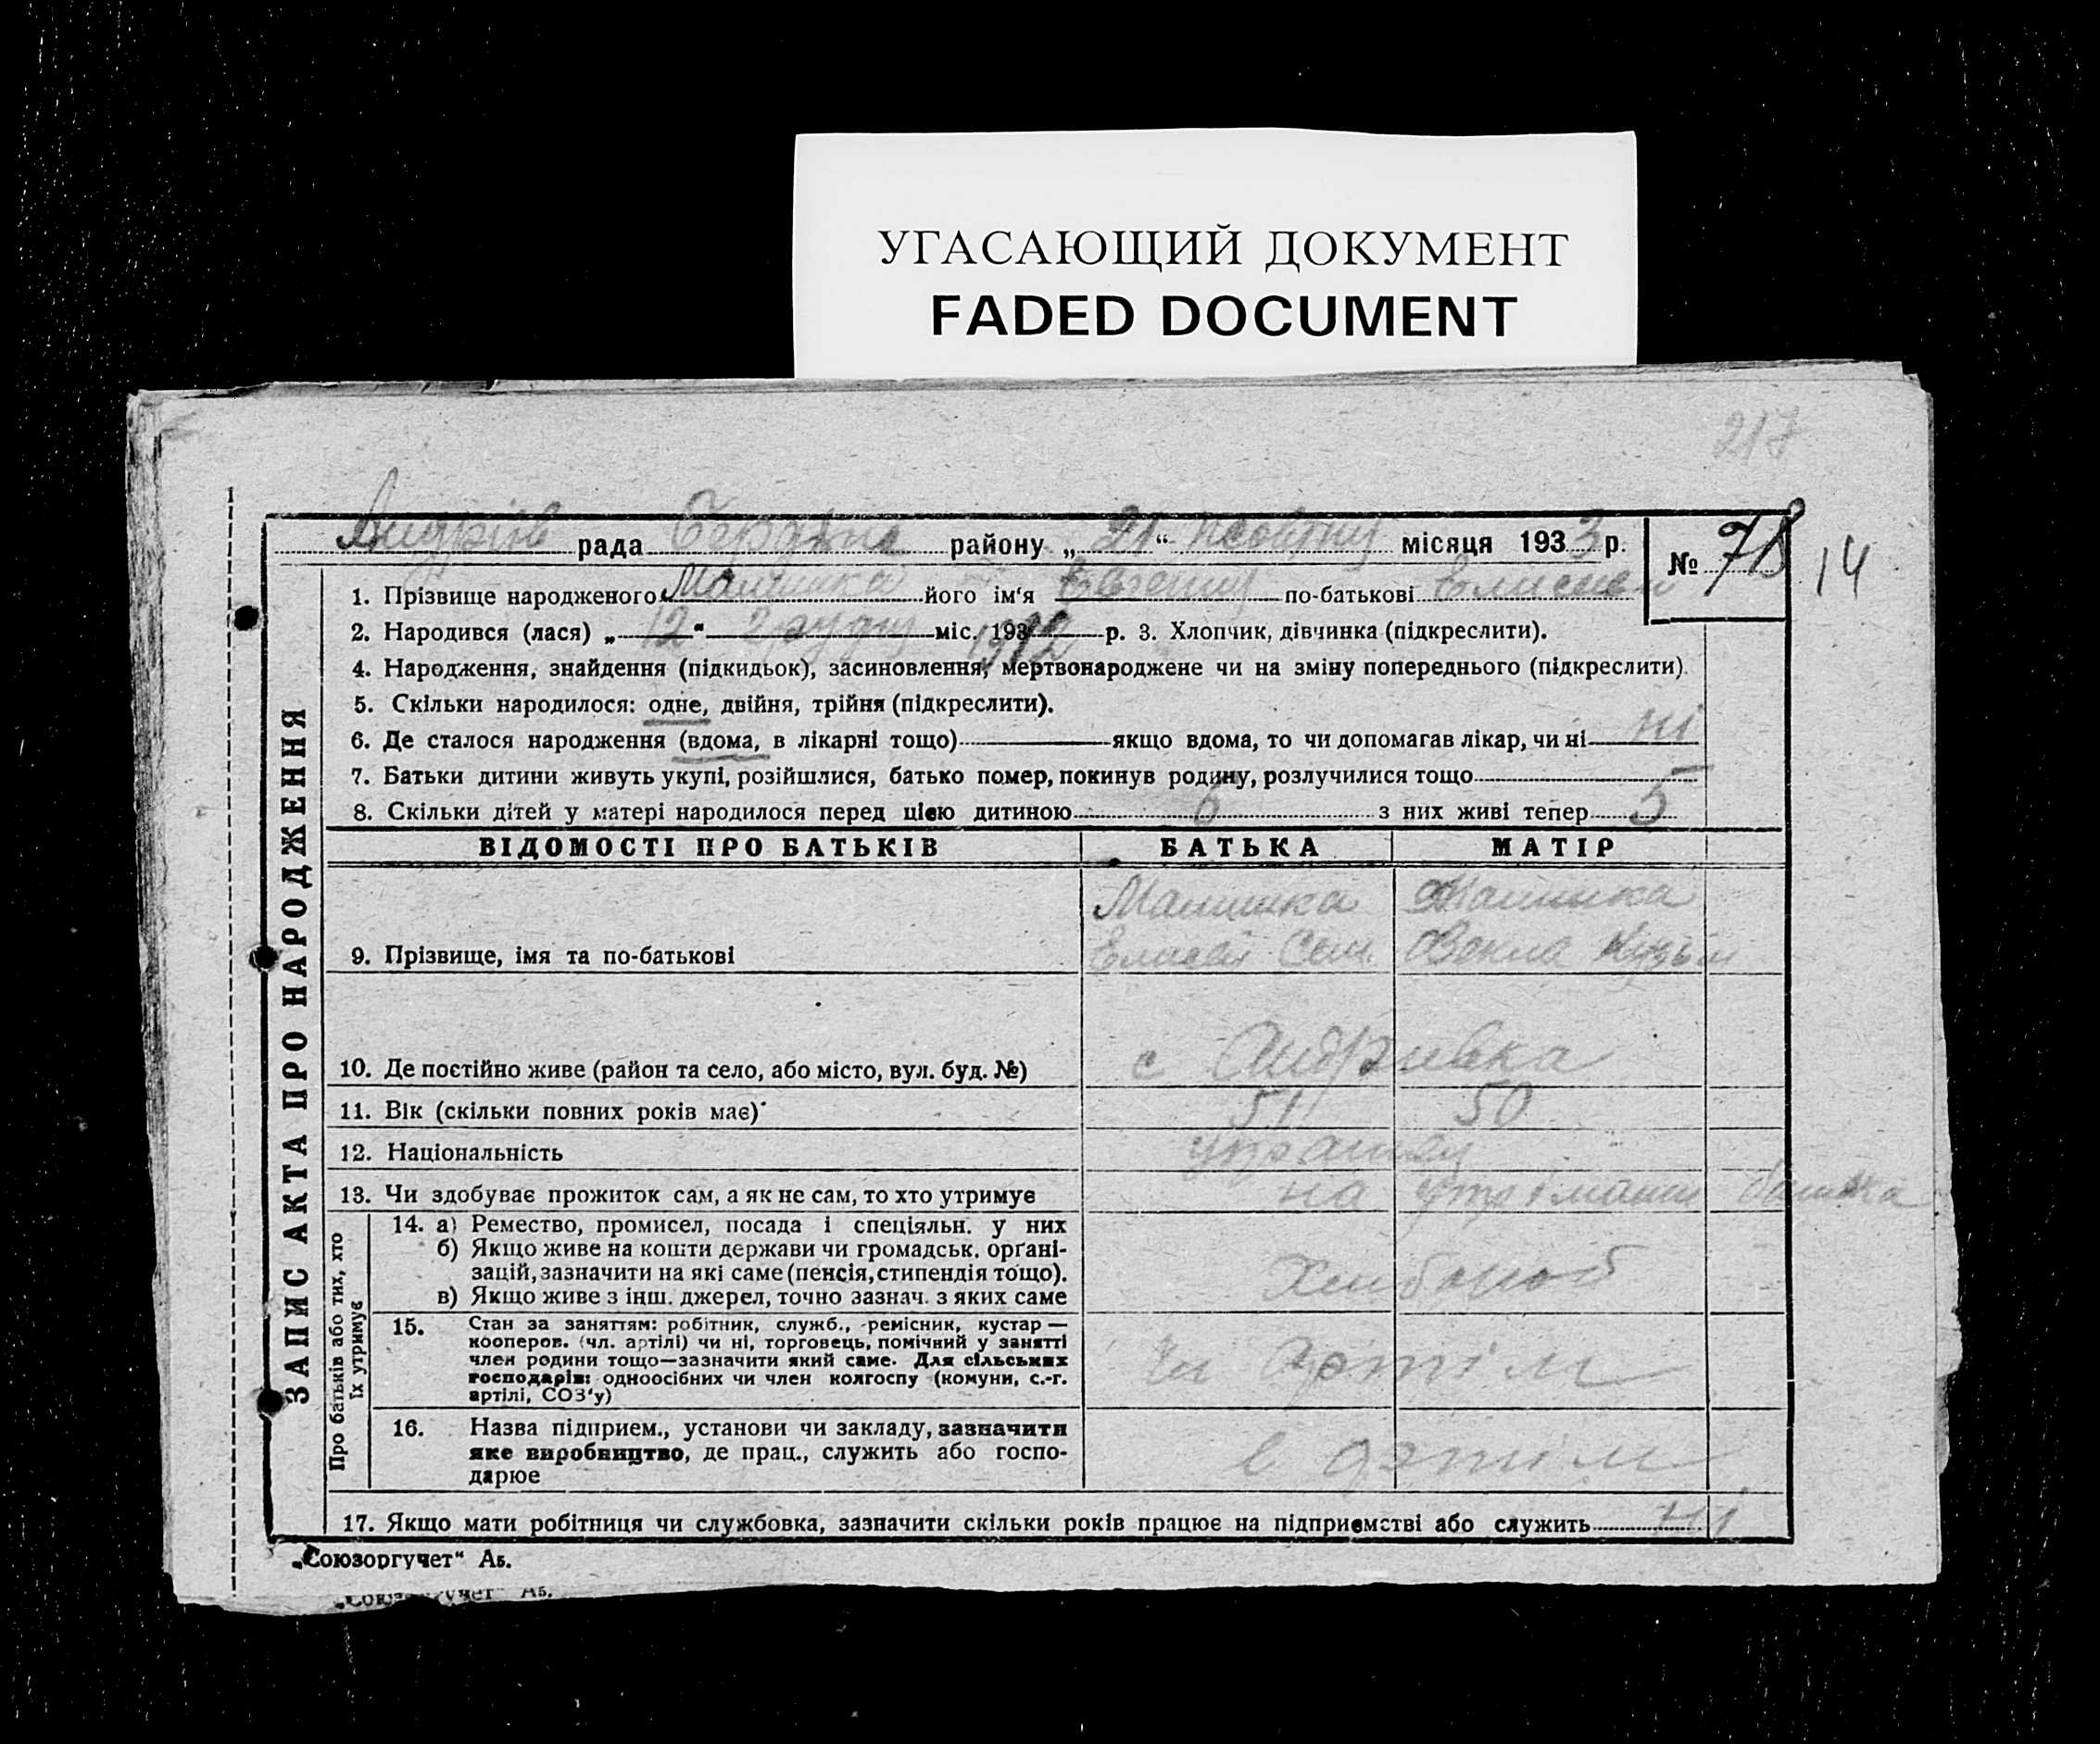 УГАСАЮЩИЙ ДОКУМЕНТ
FADED DOCUMENT
217
Андріїв рада району „21“ жовтня місяця 1933 р.
№ 78
14
1. Прізвище народженого його ім'я по-батькові
2. Народився (лася) „12“ грудня міс. 193 1912 р. 3. Хлопчик, дівчинка (підкреслити).
4. Народження, знайдення (підкидьок), засиновлення, мертвонароджене чи на зміну попереднього (підкреслити)
5. Скільки народилося: одне, двійня, трійня (підкреслити).
6. Де сталося народження (вдома, в лікарні тощо) якщо вдома, то чи допомагав лікар, чи ні ні
7. Батьки дитини живуть укупі, розійшлися, батько помер, покинув родину, розлучилися тощо
8. Скільки дітей у матері народилося перед цією дитиною 6 з них живі тепер 5
ЗАПИС АКТА ПРО НАРОДЖЕННЯ
ВІДОМОСТІ ПРО БАТЬКІВ БАТЬКА МАТІР
9. Прізвище, імя та по-батькові
Елисей Сем. Векла Кузьм
10. Де постійно живе (район та село, або місто, вул. буд. №) с Андріівка
11. Вік (скільки повних років має) 51 50
12. Національність
13. Чи здобуває прожиток сам, а як не сам, то хто утримує на утрімани батька
Про батьків або тих, хто
їх утримує
14. а) Ремество, промисел, посада і спеціяльн. у них
б) Якщо живе на кошти держави чи громадськ. орґані-
зацій, зазначити на які саме (пенсія, стипендія тощо).
в) Якщо живе з інш. джерел, точно зазнач. з яких саме
Хлибороб
15. Стан за заняттям: робітник, служб., ремісник, кустар —
кооперов. (чл. артілі) чи ні, торговець, помічний у занятті
член родини тощо—зазначити який саме. Для сільських
господарів: одноосібних чи член колгоспу (комуни, с.-г.
артілі, СОЗ'у)
Чл артіли
16. Назва підприєм., установи чи закладу, зазначити
яке виробництво, де прац., служить або госпо-
дарює
в артіли
17. Якщо мати робітниця чи службовка, зазначити скільки років працює на підприємстві або служить ні
„Союзоргучет“ Аб.